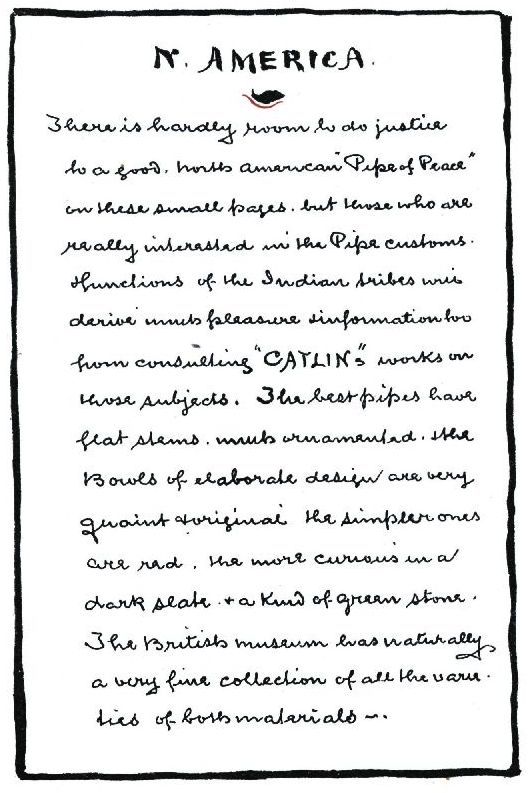 N. AMERICA.
There is hardly room to do justice
to a good. North American "Pipe of Peace"
on these small pages. but those who are
really interested in the Pipe customs.
& functions of the Indian tribes will
derive much pleasure & information too
from consulting "CATLIN's" works on
those subjects. The best pipes have
flat stems. much ornamented. & the
Bowls of elaborate design are very
quaint & original the simpler ones
are red. the more curious in a
dark slate. & a kind of green stone.
The British museum has naturally
a very fine collection of all the varie-
ties of both materials —.